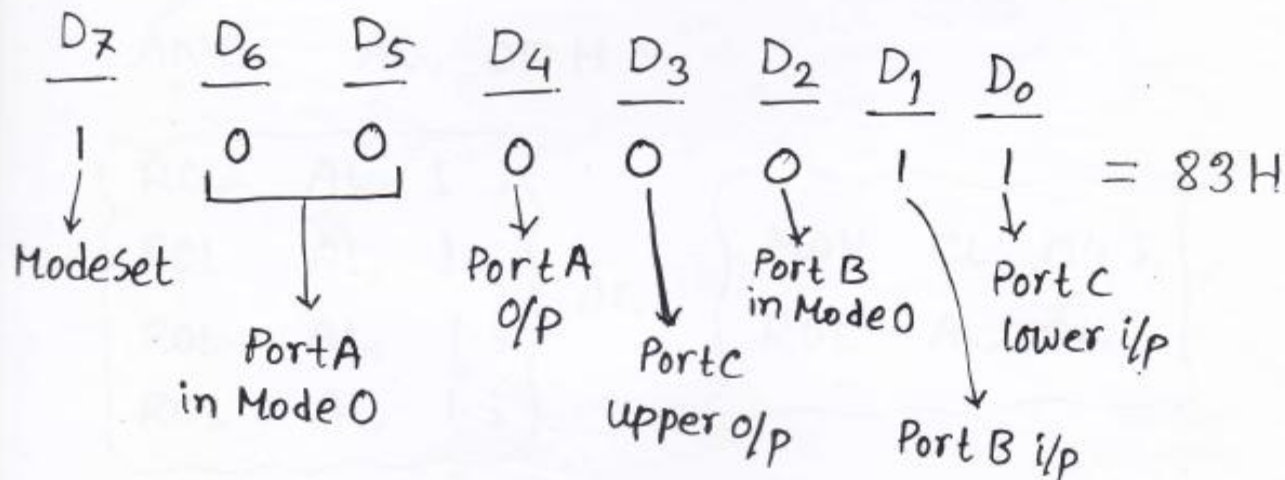 D7 D6 D5 D4 D3 D2 D1 D0
1 0 0 0 0 0 1 1 = 83H
Modeset
Port A
in Mode 0
Port A
O/P
Port C
upper o/p
Port B
in Mode 0
Port B i/p
Port C
lower i/p